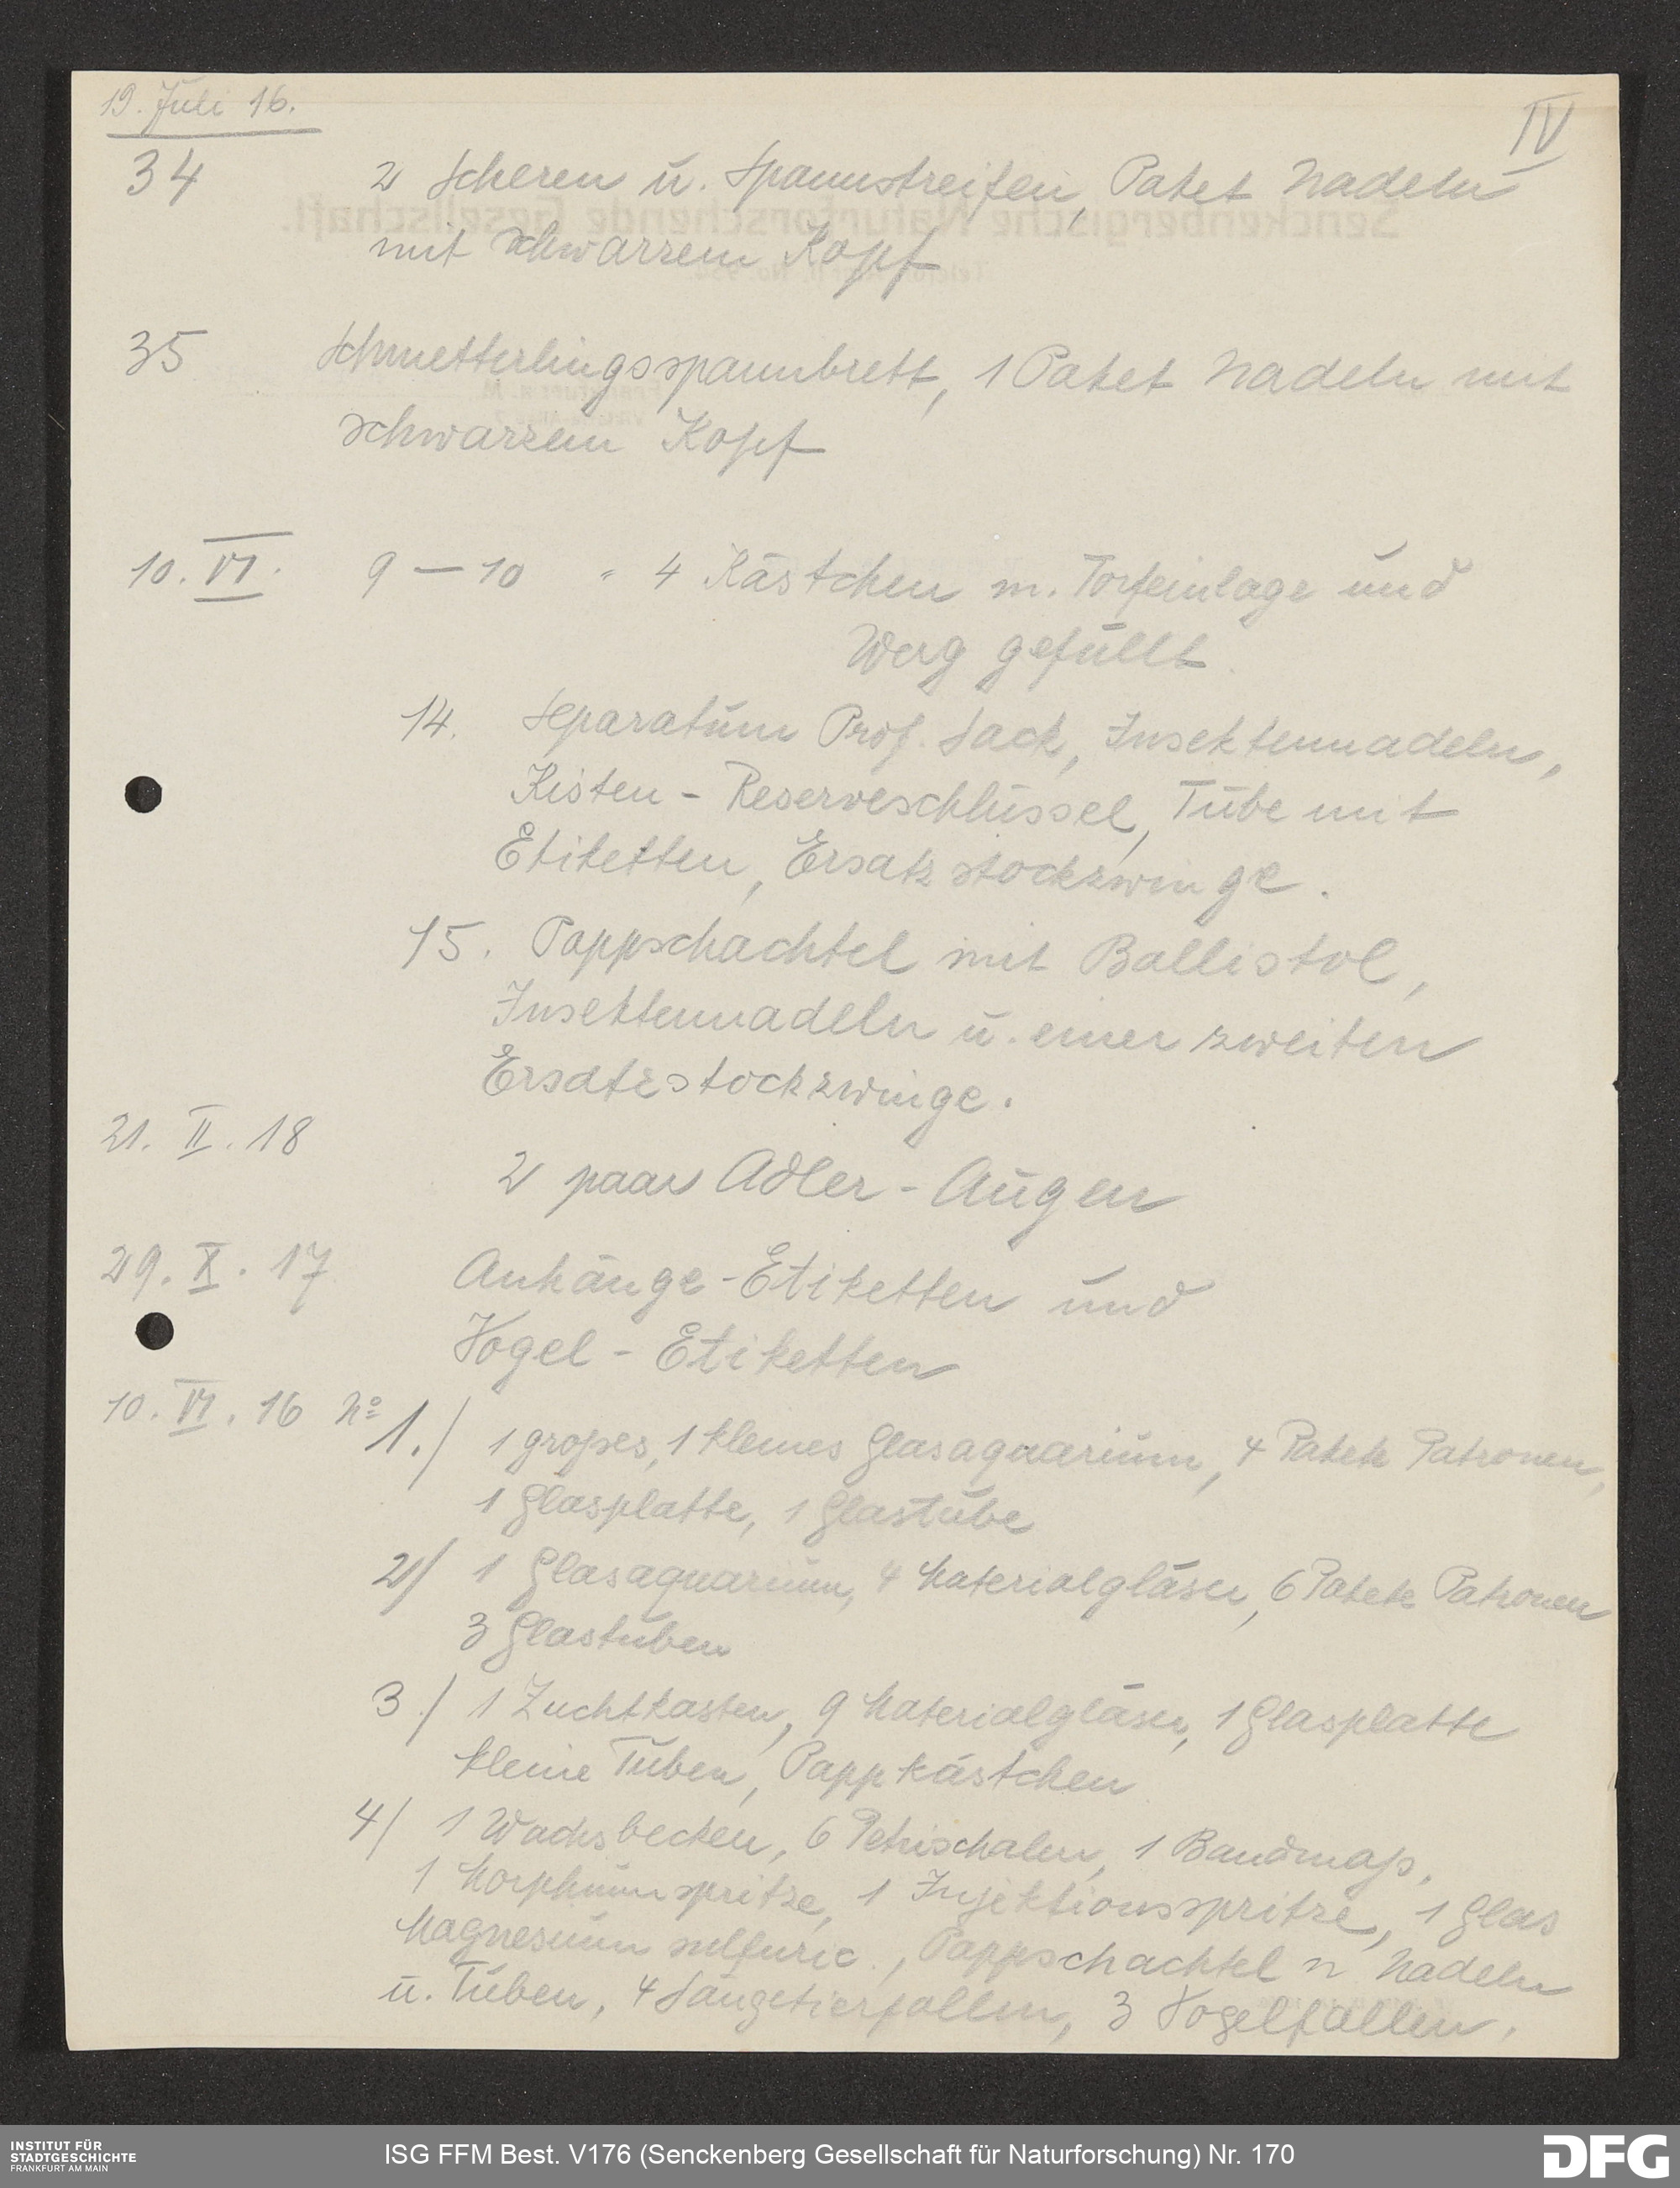 19. Juli 16.
IV
34 2 Scheren u. Spannstreifen, Paket Nadeln
mit schwarzem Kopf
35 Schmetterlingsspannbrett, 1 Paket Nadeln mit
schwarzem Kopf
10. VI. 9 — 10 " 4 Kästchen m. Torfeinlage und
Werg gefüllt
14. Separatum Prof. Sack, Insektennadeln,
Kisten - Reserveschlüssel, Tube mit
Etiketten, Ersatzstockzwinge.
15. Pappschachtel mit Ballistol,
Insektennadeln u. einer zweiten
Ersatzstockzwinge.
21. II. 18
2 paar Adler - Augen
29. X. 17 Anhänge - Etiketten und
Vogel - Etiketten
10. VI. 16 No 1./ 1 großes, 1 kleines Glasaquarium, 4 Pakete Patronen,
1 Glasplatte, 1 Glastube
2/ 1 Glasaquarium, 4 Materialgläser, 6 Pakete Patronen
3 Glastuben
3./ 1 Zuchtkasten, 9 Materialgläser, 1 Glasplatte
kleine Tuben, Pappkästchen
4/ 1 Wachsbecken, 6 Petrischalen, 1 Bandmaß,
1 Morphiumspritze, 1 Injektionsspritze, 1 Glas
Magnesium sulfuric., Pappschachtel n Nadeln
u. Tuben, 4 Säugetierfallen, 3 Vogelfallen.
Senckenbergische Naturforschende Gesellschaft.
INSTITUT FÜR
STADTGESCHICHTE
FRANKFURT AM MAIN
ISG FFM Best. V176 (Senckenberg Gesellschaft für Naturforschung) Nr. 170
DFG